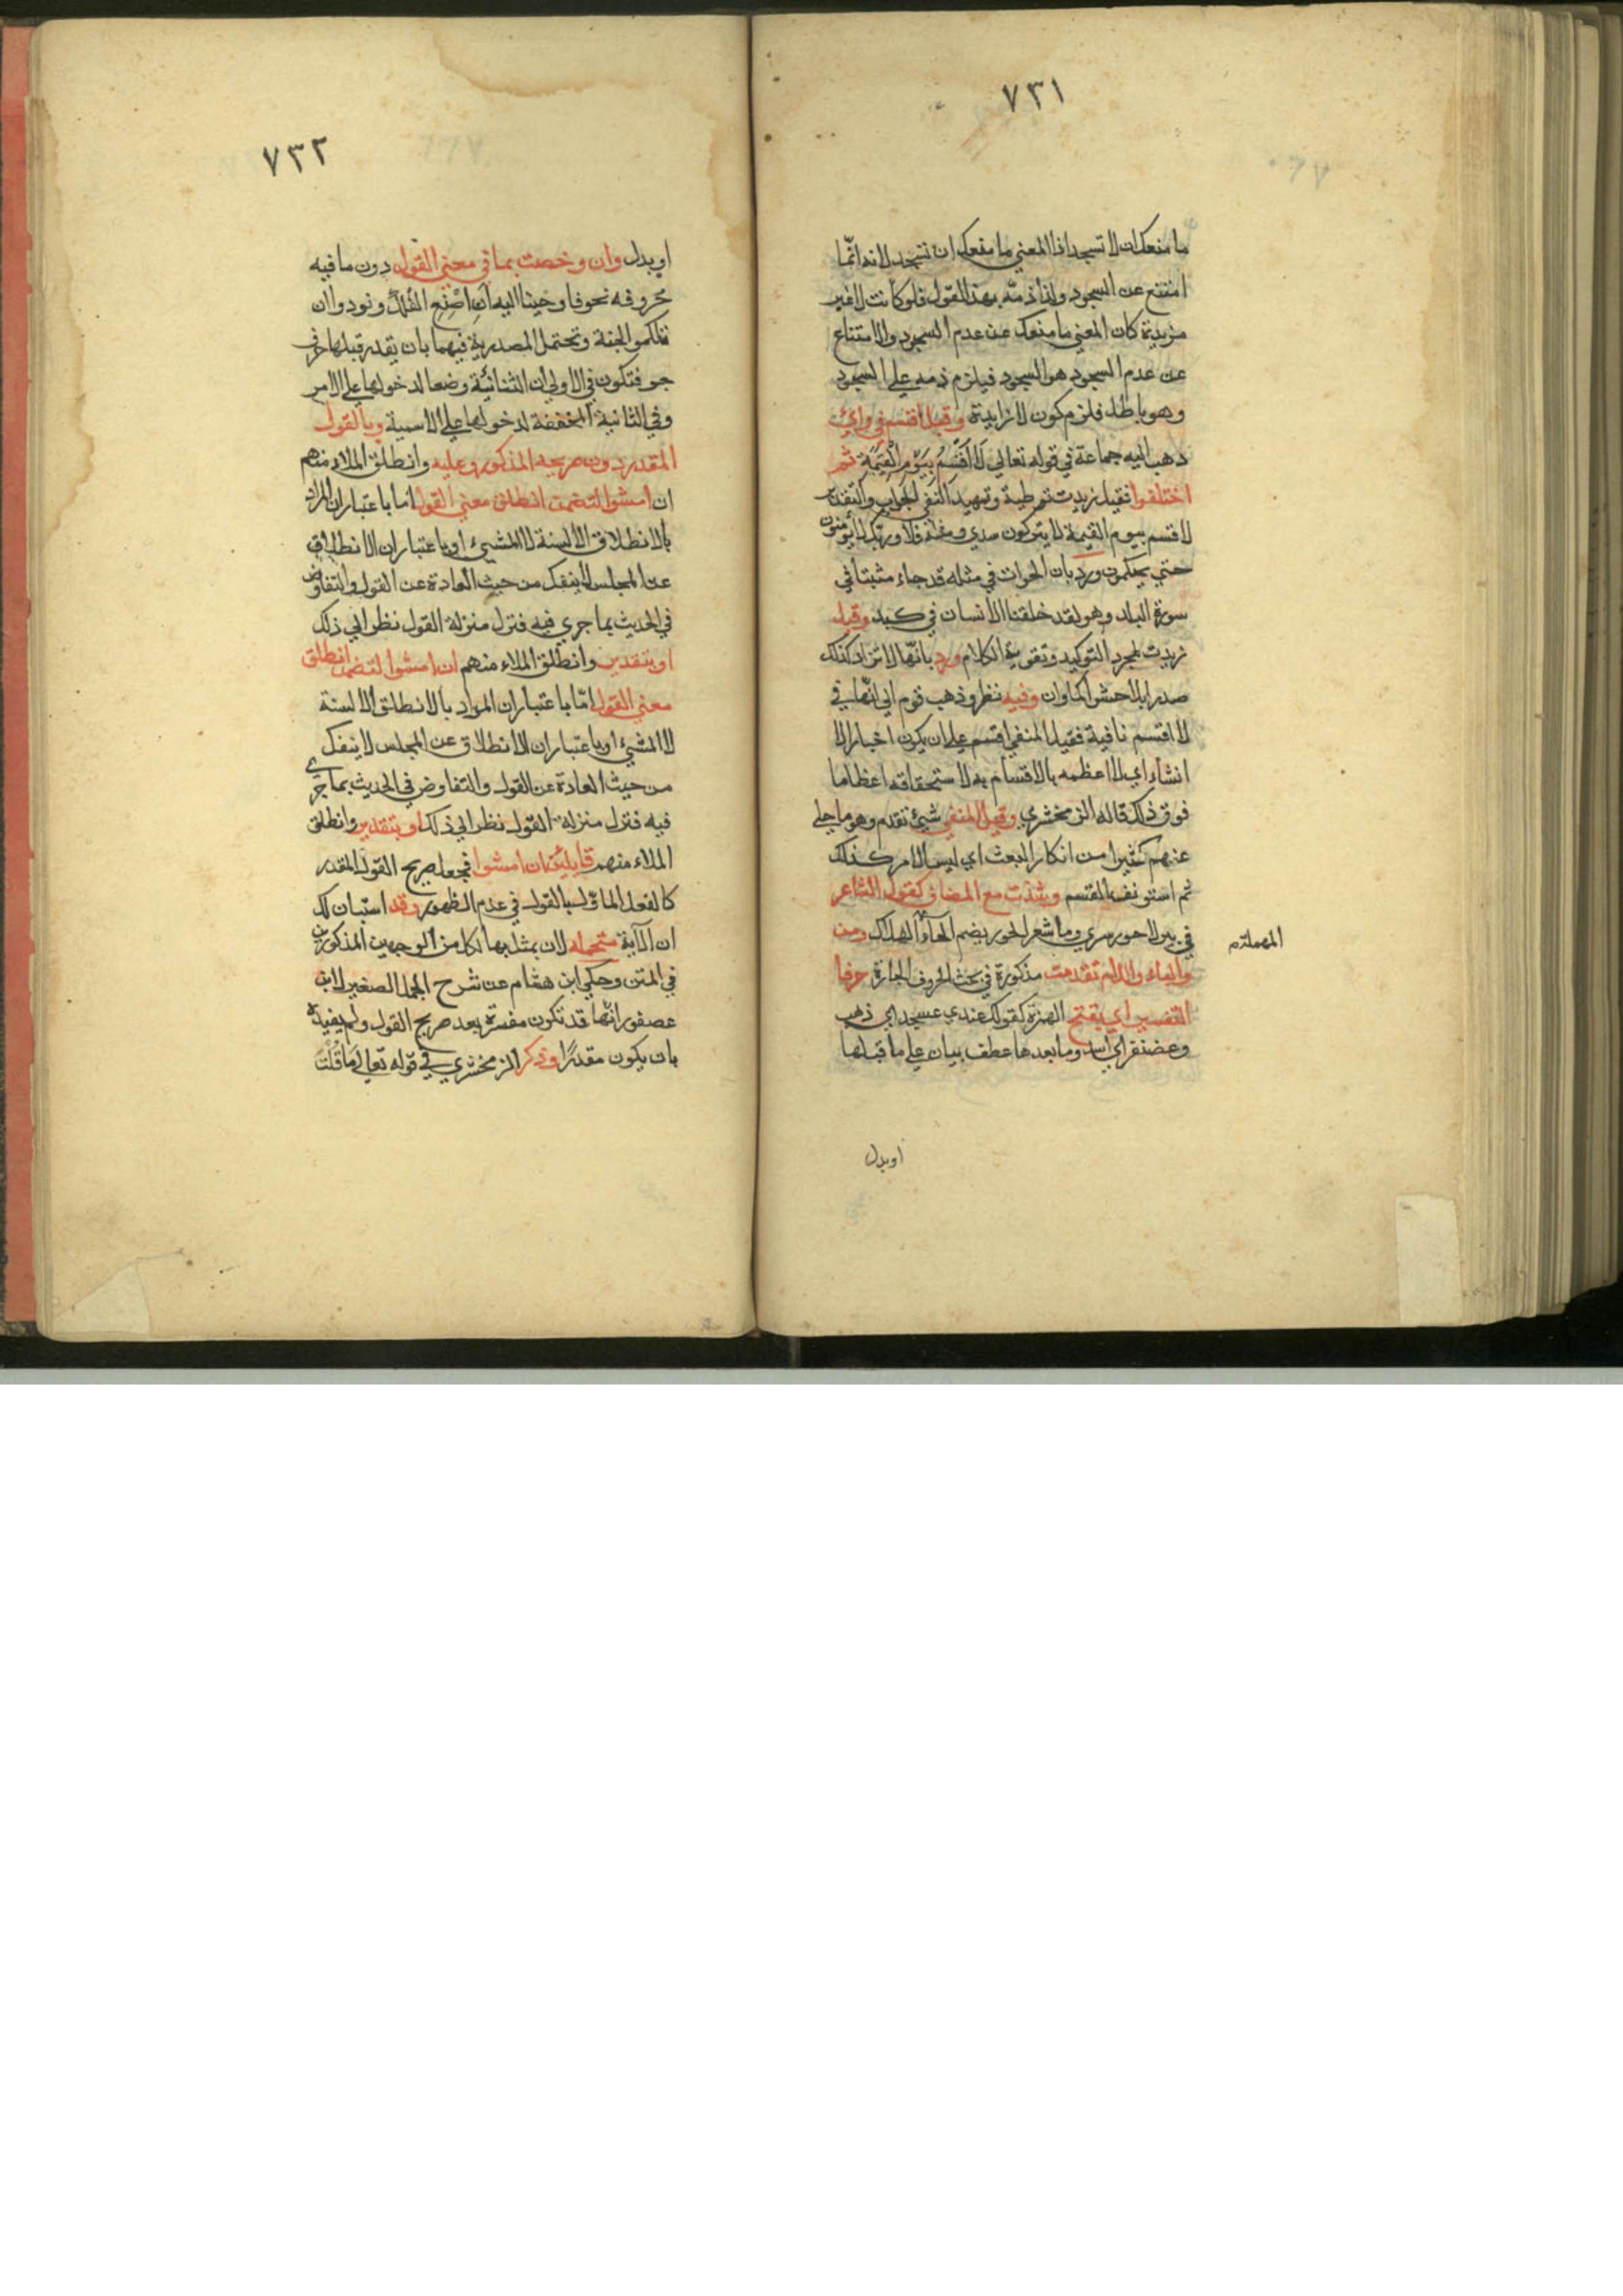 ٧٣١
ما منعك ان لا تسجد اذا المعني ما منعك ان تسجد لانه انّما
امتنع عن السجود ولذا ذمّه بهذا القول فلو كانت لا غير
مزيدة كان المعني ما منعك عن عدم السجود والامتناع
عن عدم السجود هو السجود فيلزم ذمه علي السجود
وهو باطل فلزم كون لا زايدة وقبل اقسم في راي
ذهب اليه جماعة في قوله تعالي لَا اُقْسِمُ بِيَوْمِ الْقِيٰمَةِ ثم
اختلفوا فقيل زيدت توطية وتمهيدا لنفي الجواب والتقدير
لا اقسم بيوم القيمة لا يتركون سدي ومثله فلا وربّك لا يؤمنون
حتي يحكموك ورد بان الجواب في مثله قد جاء مثبتا في
سورة البلد وهو لقد خلقنا الانسان في كبد وقيل
زيدت لمجرد التوكيد وتقوية الكلام ورد بانّها لا تزاد كذلك
صدرا بل حشوا كما وان وفيه نظر وذهب قوم الي انّها في
لا اقسم نافية فقيل المنفي اقسم علي ان يكون اخبارا لا
انشاء اي لا اعظمه بالاقسام به لاستحقاقه اعظاما
فوق ذلك قاله الزمخشري وقيل المنفي شيئ تقدم وهو ما حلي
عنهم كثيرا من انكار البعث اي ليس الامر كذلك
ثم استونف القسم وشذت مع المضاف كقول الشاعر
في بير لا حور سري وما شعر الحور بضم الحآء الهلاك ومن
المهملة م
والباء واللام تقدمت مذكورة في بحث الحروف الجارة حرفا
التفسير اي بفتح الهمزة كقولك عندي عسجد اي ذهب
وغضنفر اي اسد وما بعدها عطف بيان علي ما قبلها
او بدل
٧٣٢
او بدل وان وخصت بما في معني القول دون ما فيه
حروفه نحو فاوحينا اليه اَنِ اصْنَعِ الفُلْكَ ونودوا ان
تلكموا الجنة وتحتمل المصدرية فيهما بان يقدر قبلها حرف
جر فتكون في الاولي ان الثنائية وضعا لدخولها علي الامر
وفي الثانية المخففة لدخولها علي الاسمية وبالقول
المقدر دون صريحه المذكور وعليه وانطلق الملاء منهم
ان امشوا لتضمن انطلق معني القول امّا باعتبار ان المراد
بالانطلاق الالسنة لا المشيئ او باعتبار ان الانطلاق
عن المجلس لا ينفك من حيث العادة عن القول والتفاوض
في الحديث بما جري فيه فنزل منزلة القول نظرا الي ذلك
او بتقدير وانطلق الملاء منهم ان امشوا لتضمن انطلق
معني القول امّا باعتبار ان المراد بالانطلاق الالسنة
لا المشيئ او باعتبار ان الانطلاق عن المجلس لا ينفك
من حيث العادة عن القول والتفاوض في الحديث بما جري
فيه فنزل منزلة القول نظرا الي ذلك او بتقدير وانطلق
الملاء منهم قايلين ان امشوا فجعل صريح القول المقدر
كالفعل الماوّل بالقول في عدم الظهور وقد استبان لك
ان الآية متحمله لان يمثل بها لكل من الوجهين المذكورين
في المتن وحكي ابن هشام عن شرح الجمل الصغير لابن
عصفور انّها قد تكون مفسرة بعد صريح القول ولم يقيده
بان يكون مقدرًا وذكر الزمخشري في قوله تعالي مَا قُلْتُ